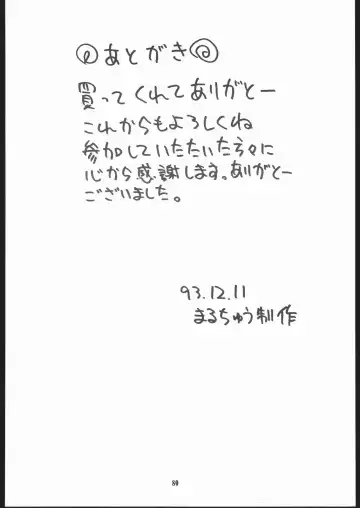 あとがき
買ってくれてありがとー
これからもよろしくね
参加していただいた方々に
心から感謝します。ありがとー
ございました。
93.12.11
まるちゅう制作
80